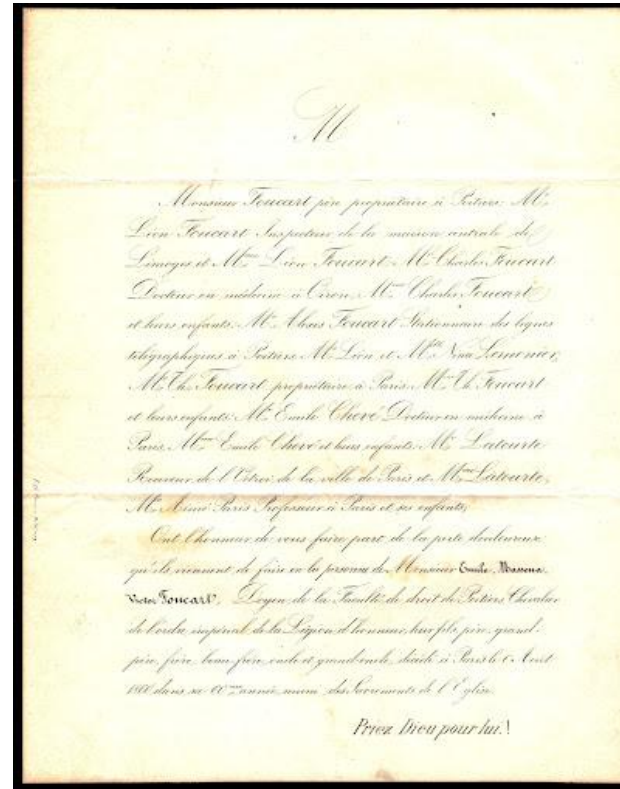 M
Monsieur Foucart père propriétaire à Poitiers, Mr.
Léon Foucart Inspecteur de la maison centrale de
Limoges et Mme. Léon Foucart, Mr. Charles Foucart
Docteur en médecine à Oiron, Mme. Charles Foucart
et leurs enfants, Mr. Alexis Foucart Stationnaire des lignes
télégraphiques à Poitiers, Mr. Léon et Mlle. Lemonier,
Mr. Th. Foucart propriétaire à Paris, Mme. Th. Foucart
et leurs enfants, Mr. Emile Chevé Docteur en médecine à
Paris, Mme. Emile Chevé et leurs enfants, Mr. Latourte
Receveur de l'Octroi de la ville de Paris et Mme. Latourte,
Mr. Aimé Paris Professeur à Paris et ses enfants,
Ont l'honneur de vous faire part de la perte douloureuse
qu'ils viennent de faire en la personne de Monsieur Emile, Massena,
Victor Foucart, Doyen de la Faculté de droit de Poitiers, Chevalier
de l'ordre impérial de la Légion d'honneur, leur fils, père, grand-
père, frère, beau-frère, oncle et grand oncle, décédé à Paris le Août
1860 dans sa année, muni des Sacrements de l'Eglise.
Priez Dieu pour lui.!